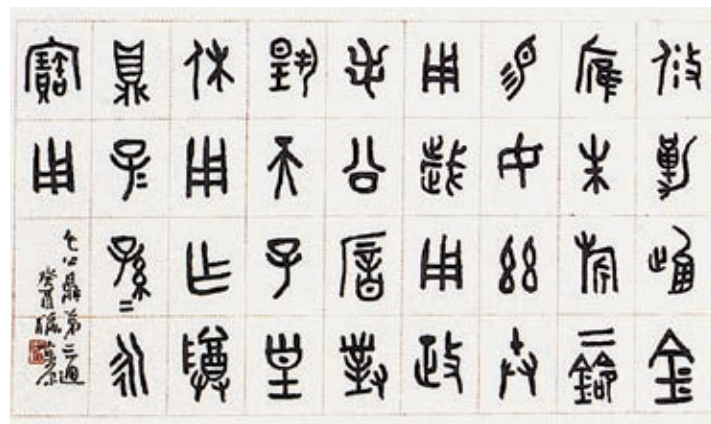 攸勒金
膺朱旂二鈴
易女茲灷
用歲用政
毛公厝對
揚天子皇
休用作尊
鼎子=孫=永
寶用
毛公鼎第三通
癸酉臘